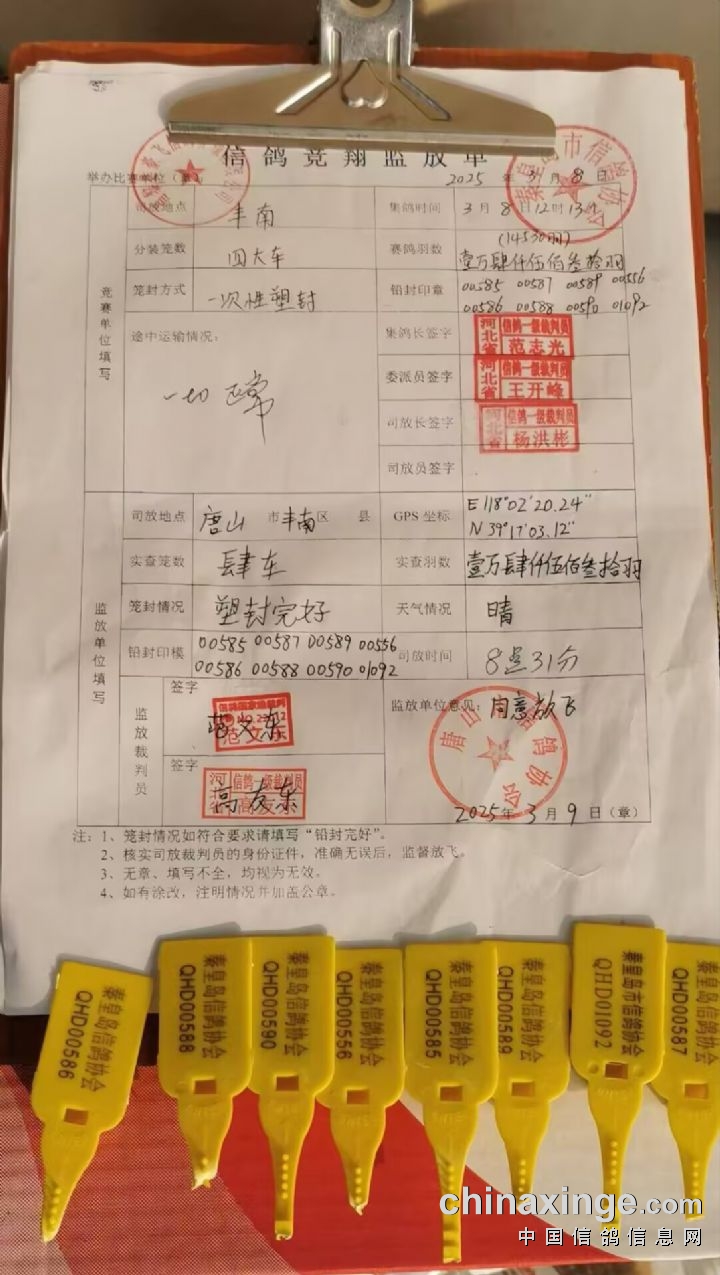 信鸽竞翔监放单
举办比赛单位（章） 2025 年 3 月 8 日
秦皇岛市信鸽协会
竞赛单位填写
司放地点 丰南 集鸽时间 3月8日12时13分
(14530羽)
分装笼数 四大车 赛鸽羽数 壹万肆仟伍佰叁拾羽
笼封方式 一次性塑封 铅封印章 00585 00587 00589 00556
00586 00588 00590 01092
途中运输情况： 一切正常
集鸽长签字 河北省 信鸽一级裁判员 范志光
委派员签字 河北省 信鸽一级裁判员 王开峰
司放长签字 河北省 信鸽一级裁判员 杨洪彬
司放员签字
监放单位填写
司放地点 唐山 市 丰南 区 县 GPS 坐标 E 118°02'20.24"
N 39°17'03.12"
实查笼数 肆车 实查羽数 壹万肆仟伍佰叁拾羽
笼封情况 塑封完好 天气情况 晴
铅封印模 00585 00587 00589 00556
00586 00588 00590 01092
司放时间 8点31分
监放裁判员
签字 范文东
签字 河北省 信鸽一级裁判员 高友东
监放单位意见： 同意放飞
2025年 3 月 9 日（章）
注：1、笼封情况如符合要求请填写“铅封完好”。
2、核实司放裁判员的身份证件，准确无误后，监督放飞。
3、无章、填写不全，均视为无效。
4、如有涂改，注明情况并加盖公章。
秦皇岛信鸽协会
QHD00586
秦皇岛信鸽协会
QHD00588
秦皇岛信鸽协会
QHD00590
秦皇岛信鸽协会
QHD00556
秦皇岛信鸽协会
QHD00585
秦皇岛信鸽协会
QHD00589
秦皇岛市信鸽协会
QHD01092
秦皇岛信鸽协会
QHD00587
chinaxinge.com
中国信鸽信息网